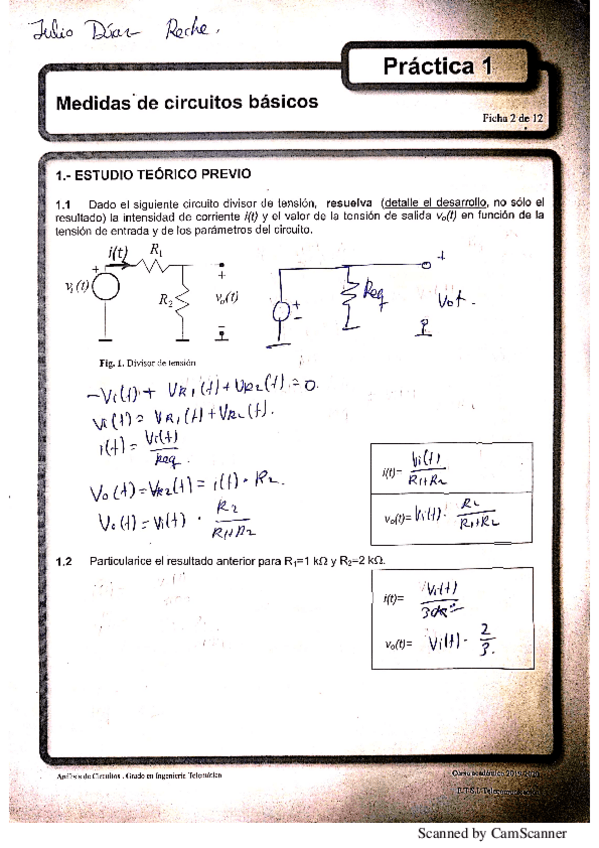 Julio Díaz Reche.
Práctica 1
Medidas de circuitos básicos
Ficha 2 de 12
1.- ESTUDIO TEÓRICO PREVIO
1.1 Dado el siguiente circuito divisor de tensión, resuelva (detalle el desarrollo, no sólo el
resultado) la intensidad de corriente i(t) y el valor de la tensión de salida vo(t) en función de la
tensión de entrada y de los parámetros del circuito.
i(t) R1
+
vi(t)
R2
+
vo(t)
-
+
-
Req
+
Vot.
Fig. 1. Divisor de tensión
-Vi(t) + VR1(t) + VR2(t) = 0.
Vi(t) = VR1(t) + VR2(t).
i(t) = Vi(t)/Req
Vo(t) = VR2(t) = i(t) · R2.
Vo(t) = Vi(t) · R2/R1+R2
i(t)= Vi(t)/R1+R2
vo(t)= Vi(t) · R2/R1+R2
1.2 Particularice el resultado anterior para R1=1 kΩ y R2=2 kΩ.
i(t)= Vi(t)/
vo(t)= Vi(t) · 2/3.
Análisis de Circuitos . Grado en Ingeniería Telemática
Curso académico
Scanned by CamScanner